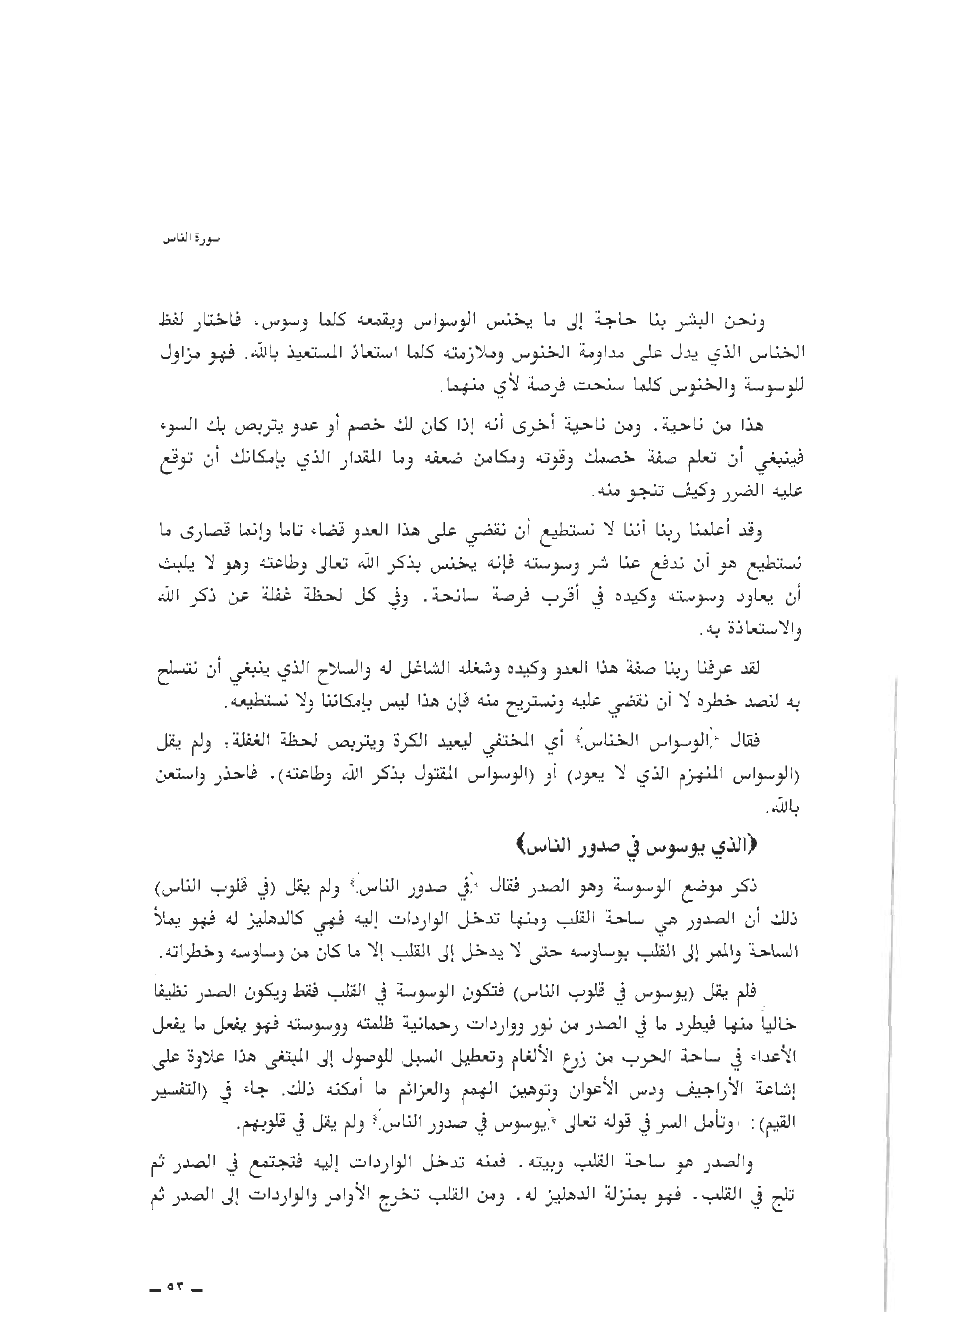 سورة الناس
ونحن البشر بنا حاجة إلى ما يخنس الوسواس ويقمعه كلما وسوس، فاختار لفظ
الخناس الذي يدل على مداومة الخنوس وملازمته كلما استعاذ المستعيذ بالله. فهو مزاول
للوسوسة والخنوس كلما سنحت فرصة لأي منهما.
هذا من ناحية. ومن ناحية أخرى أنه إذا كان لك خصم أو عدو يتربص بك السوء
فينبغي أن تعلم صفة خصمك وقوته ومكامن ضعفه وما المقدار الذي بإمكانك أن توقع
عليه الضرر وكيف تنجو منه.
وقد أعلمنا ربنا أننا لا نستطيع أن نقضي على هذا العدو قضاء تاما وإنما قصارى ما
نستطيع هو أن ندفع عنا شر وسوسته فإنه يخنس بذكر الله تعالى وطاعته وهو لا يلبث
أن يعاود وسوسته وكيده في أقرب فرصة سانحة. وفي كل لحظة غفلة عن ذكر الله
والاستعاذة به.
لقد عرفنا ربنا صفة هذا العدو وكيده وشغله الشاغل له والسلاح الذي ينبغي أن نتسلح
به لنصد خطره لا أن نقضي عليه ونستريح منه فإن هذا ليس بإمكاننا ولا نستطيعه.
فقال ﴿الوسواس الخناس﴾ أي المختفي ليعيد الكرة ويتربص لحظة الغفلة، ولم يقل
(الوسواس المنهزم الذي لا يعود) أو (الوسواس المقتول بذكر الله وطاعته). فاحذر واستعن
بالله.
﴿الذي يوسوس في صدور الناس﴾
ذكر موضع الوسوسة وهو الصدر فقال ﴿في صدور الناس﴾ ولم يقل (في قلوب الناس)
ذلك أن الصدور هي ساحة القلب ومنها تدخل الواردات إليه فهي كالدهليز له فهو يملأ
الساحة والممر إلى القلب بوساوسه حتى لا يدخل إلى القلب إلا ما كان من وساوسه وخطراته.
فلم يقل (يوسوس في قلوب الناس) فتكون الوسوسة في القلب فقط ويكون الصدر نظيفا
خالياً منها فيطرد ما في الصدر من نور وواردات رحمانية ظلمته ووسوسته فهو يفعل ما يفعل
الأعداء في ساحة الحرب من زرع الألغام وتعطيل السبل للوصول إلى المبتغى هذا علاوة على
إشاعة الأراجيف ودس الأعوان وتوهين الهمم والعزائم ما أمكنه ذلك. جاء في (التفسير
القيم): «وتأمل السر في قوله تعالى ﴿يوسوس في صدور الناس﴾ ولم يقل في قلوبهم.
والصدر هو ساحة القلب وبيته. فمنه تدخل الواردات إليه فتجتمع في الصدر ثم
تلج في القلب. فهو بمنزلة الدهليز له. ومن القلب تخرج الأوامر والواردات إلى الصدر ثم
— ٥٣ —